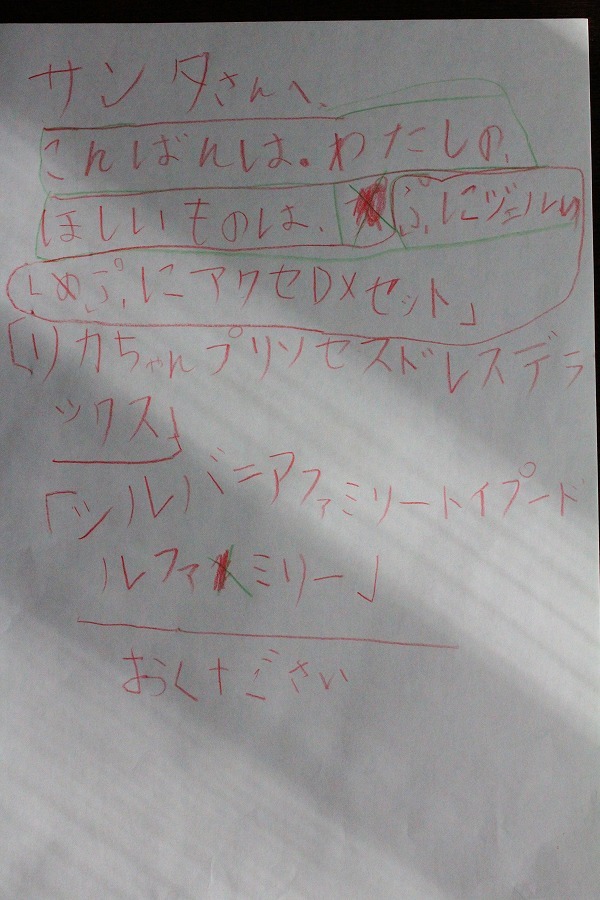 サンタさんへ、
こんばんは。わたしの、
ほしいものは、ぷにジェルゆ
めぷにアクセDXセット」
「リカちゃんプリンセスドレスデラ
ックス」
「シルバニアファミリートイプード
ルファミリー」
おくださいさい